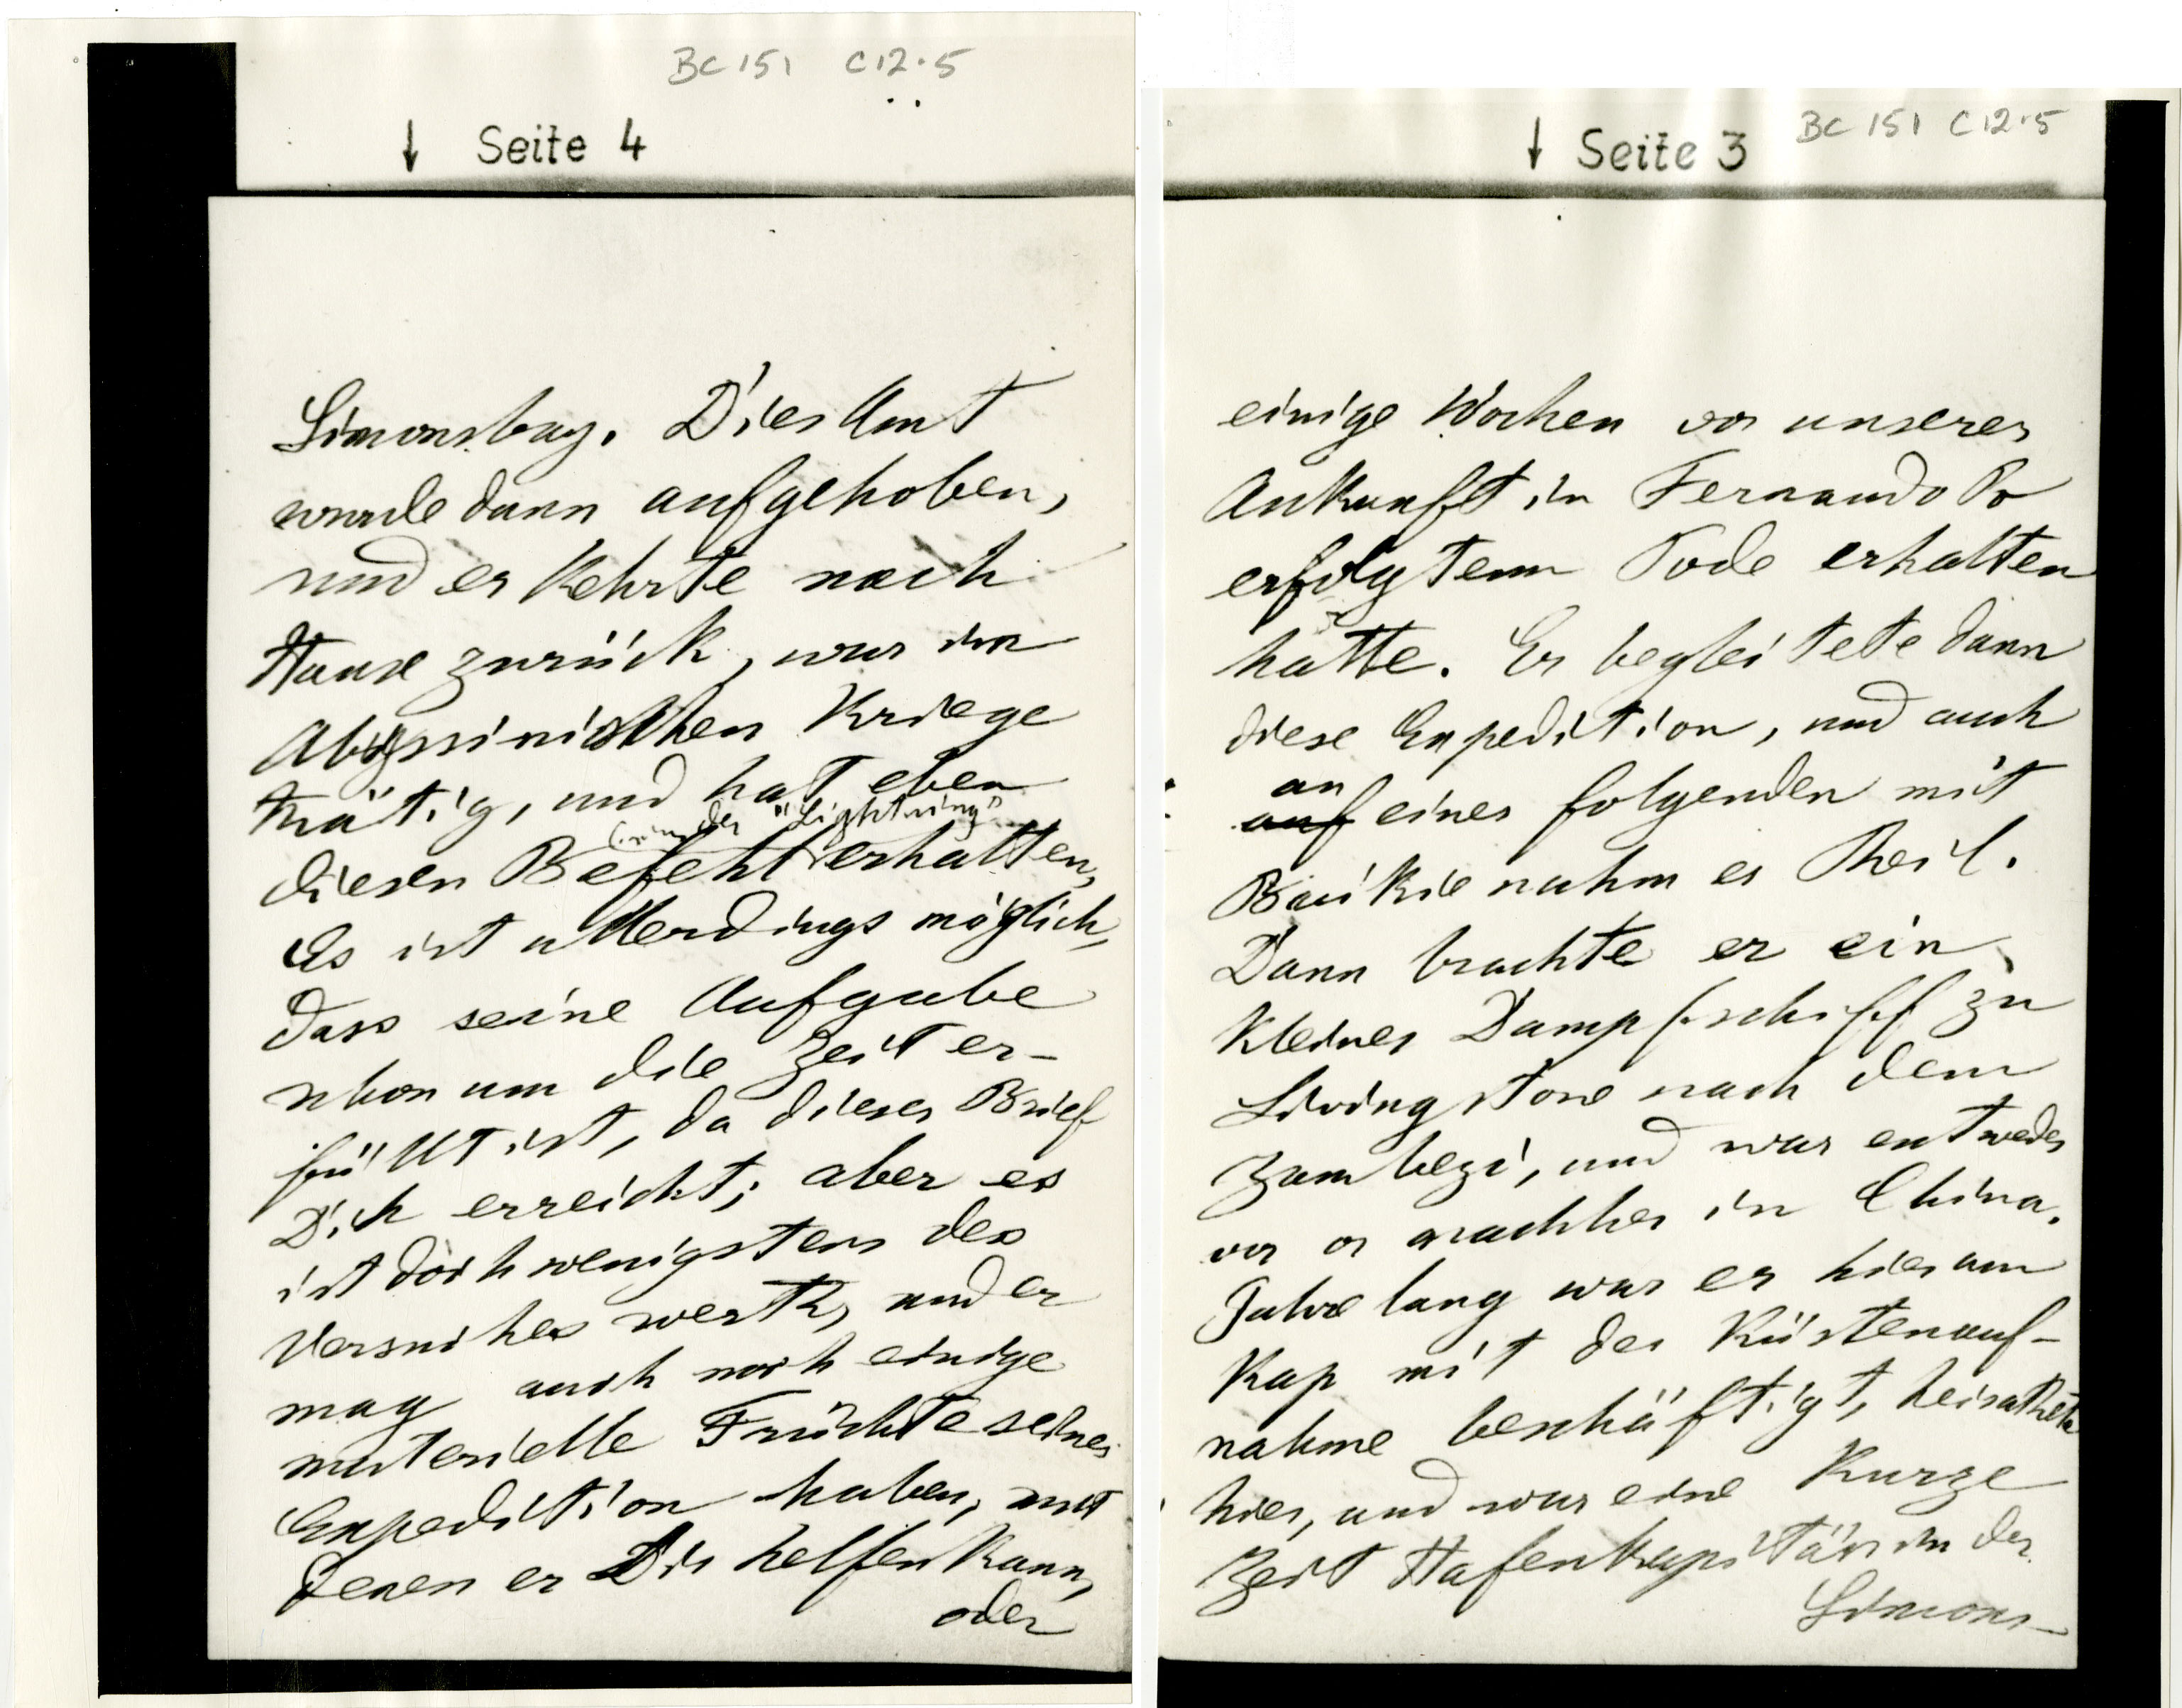 BC 151 C12.5
↓ Seite 4
Simonsbay. Dies Amt
wurde dann aufgehoben,
und er kehrte nach
Hause zurück, war im
Abyssinischen Kriege
thätig, und hat eben
der "Lightning"
diesen Befehl erhalten,
Es ist allerdings möglich,
dass seine Aufgabe
schon um die Zeit er-
füllt ist, da dieser Brief
Dich erreicht; aber es
ist doch wenigstens des
Versuches werth, und er
mag auch noch einige
materielle Früchte seiner
Expedition haben, mit
denen er Dir helfen kann,
oder
BC 151 C12.5
↓ Seite 3
einige Wochen vor unserer
Ankunft in Fernando Po
erfolgtem Tode erhalten
hatte. Er begleitete dann
diese Expedition, und auch
an
auf einer folgenden mit
Baikie nahm er Theil.
Dann brachte er ein
kleines Dampfschiff zu
Livingstone nach dem
Zambezi, und war entweder
vor or nachher in China.
Jahre lang war er hier am
Kap mit der Küstenauf-
nahme beschäftigt, heirathete
hier, und war eine kurze
Zeit Hafenkapitän in der
Simons-